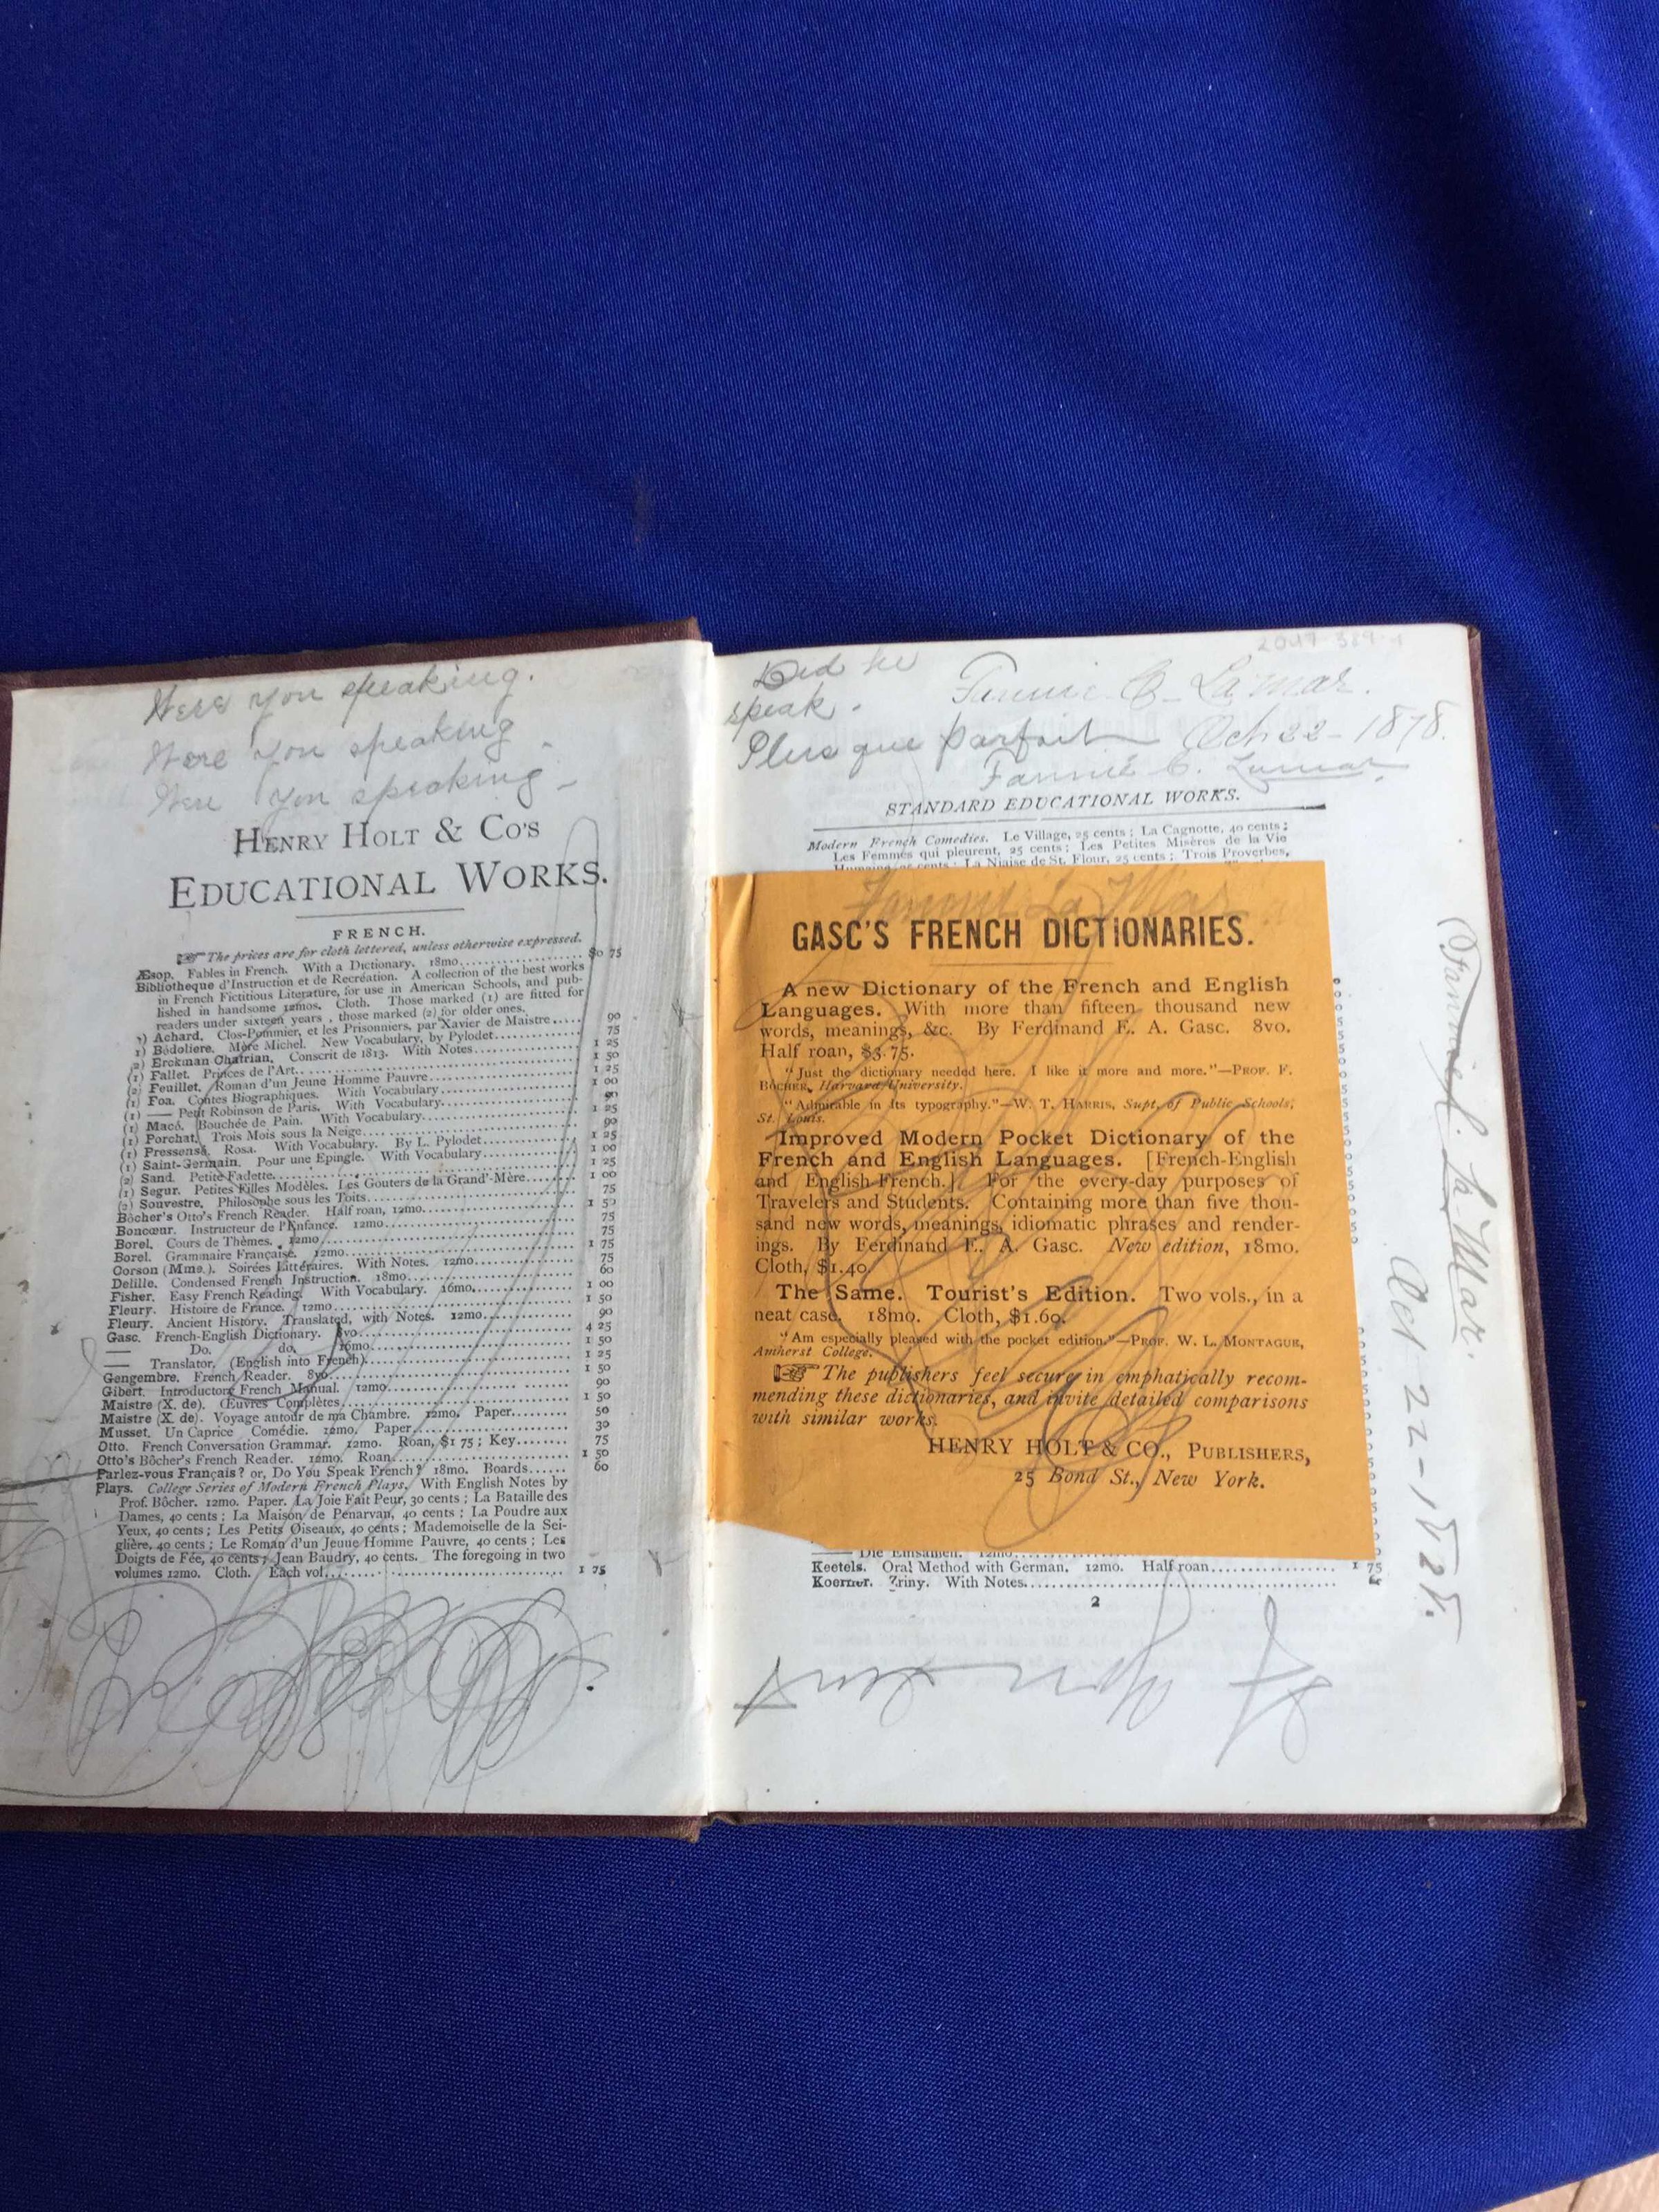 Were you speaking.
Were you speaking
Were you speaking
HENRY HOLT & CO'S
EDUCATIONAL WORKS.
FRENCH.
☞ The prices are for cloth lettered, unless otherwise expressed.
Æsop. Fables in French. With a Dictionary. 18mo. $0 75
Bibliotheque d'Instruction et de Recréation. A collection of the best works
in French Fictitious Literature, for use in American Schools, and pub-
lished in handsome 12mos. Cloth. Those marked (1) are fitted for
readers under sixteen years, those marked (2) for older ones.
1) Achard. Clos-Pommier, et les Prisonniers, par Xavier de Maistre..... 90
1) Bédoliere. Mère Michel. New Vocabulary, by Pylodet..... 75
2) Erckman Chatrian. Conscrit de 1813. With Notes..... 1 25
(1) Fallet. Princes de l'Art..... 1 50
(2) Feuillet. Roman d'un Jeune Homme Pauvre..... 1 25
(1) Foa. Contes Biographiques. With Vocabulary..... 1 00
(1) —— Petit Robinson de Paris. With Vocabulary..... 90
(1) Macé. Bouchée de Pain. With Vocabulary..... 1 25
(1) Porchat. Trois Mois sous la Neige..... 90
(1) Pressensé. Rosa. With Vocabulary. By L. Pylodet..... 1 25
(1) Saint-Germain. Pour une Epingle. With Vocabulary..... 1 00
(2) Sand. Petite Fadette..... 1 25
(1) Segur. Petites Filles Modèles. Les Gouters de la Grand'-Mère..... 1 00
(2) Souvestre. Philosophe sous les Toits..... 75
Bôcher's Otto's French Reader. Half roan, 12mo..... 1 50
Bonœur. Instructeur de l'Enfance. 12mo..... 75
Borel. Cours de Thèmes. 12mo..... 75
Borel. Grammaire Française. 12mo..... 1 75
Corson (Mme.). Soirées Littéraires. With Notes. 12mo..... 75
Delille. Condensed French Instruction. 18mo..... 60
Fisher. Easy French Reading. With Vocabulary. 16mo..... 1 00
Fleury. Histoire de France. 12mo..... 1 50
Fleury. Ancient History. Translated, with Notes. 12mo..... 90
Gasc. French-English Dictionary. 8vo..... 4 25
—— Do. do. 16mo..... 1 50
—— Translator. (English into French)..... 1 25
Gengembre. French Reader. 8vo..... 1 50
Gibert. Introductory French Manual. 12mo..... 90
Maistre (X. de). Œuvres Complètes..... 1 50
Maistre (X. de). Voyage autour de ma Chambre. 12mo. Paper..... 50
Musset. Un Caprice Comédie. 12mo. Paper..... 30
Otto. French Conversation Grammar. 12mo. Roan, $1 75; Key..... 75
Otto's Bôcher's French Reader. 12mo. Roan..... 1 50
Parlez-vous Français? or, Do You Speak French? 18mo. Boards...... 60
Plays. College Series of Modern French Plays. With English Notes by
Prof. Bôcher. 12mo. Paper. La Joie Fait Peur, 30 cents; La Bataille des
Dames, 40 cents; La Maison de Penarvan, 40 cents; La Poudre aux
Yeux, 40 cents; Les Petits Oiseaux, 40 cents; Mademoiselle de la Sei-
glière, 40 cents; Le Roman d'un Jeune Homme Pauvre, 40 cents; Les
Doigts de Fée, 40 cents; Jean Baudry, 40 cents. The foregoing in two
volumes 12mo. Cloth. Each vol..... 1 75
Did he
speak.
Fannie C. LaMar.
Plus que parfait Oct 22-1878.
Fannie C. Lamar
STANDARD EDUCATIONAL WORKS.
Modern French Comedies. Le Village, 25 cents; La Cagnotte, 40 cents;
Les Femmes qui pleurent, 25 cents; Les Petites Misères de la Vie
Humaine, 25 cents; La Niaise de St. Flour, 25 cents; Trois Proverbes,
Fanny La Mar
GASC'S FRENCH DICTIONARIES.
A new Dictionary of the French and English
Languages. With more than fifteen thousand new
words, meanings, &c. By Ferdinand E. A. Gasc. 8vo.
Half roan, $3.75.
"Just the dictionary needed here. I like it more and more."—PROF. F.
BÔCHER, Harvard University.
"Admirable in its typography."—W. T. HARRIS, Supt. of Public Schools,
St. Louis.
Improved Modern Pocket Dictionary of the
French and English Languages. [French-English
and English-French.] For the every-day purposes of
Travelers and Students. Containing more than five thou-
sand new words, meanings, idiomatic phrases and render-
ings. By Ferdinand E. A. Gasc. New edition, 18mo.
Cloth, $1.40.
The Same. Tourist's Edition. Two vols., in a
neat case. 18mo. Cloth, $1.60.
"Am especially pleased with the pocket edition."—PROF. W. L. MONTAGUE,
Amherst College.
☞ The publishers feel secure in emphatically recom-
mending these dictionaries, and invite detailed comparisons
with similar works.
HENRY HOLT & CO., PUBLISHERS,
25 Bond St., New York.
—— Die Einsamen. 12mo.
Keetels. Oral Method with German. 12mo. Half roan..... 1 75
Koerner. Zriny. With Notes.....
2
Fannie C. La Mar.
Oct 22-1878.
If you sent